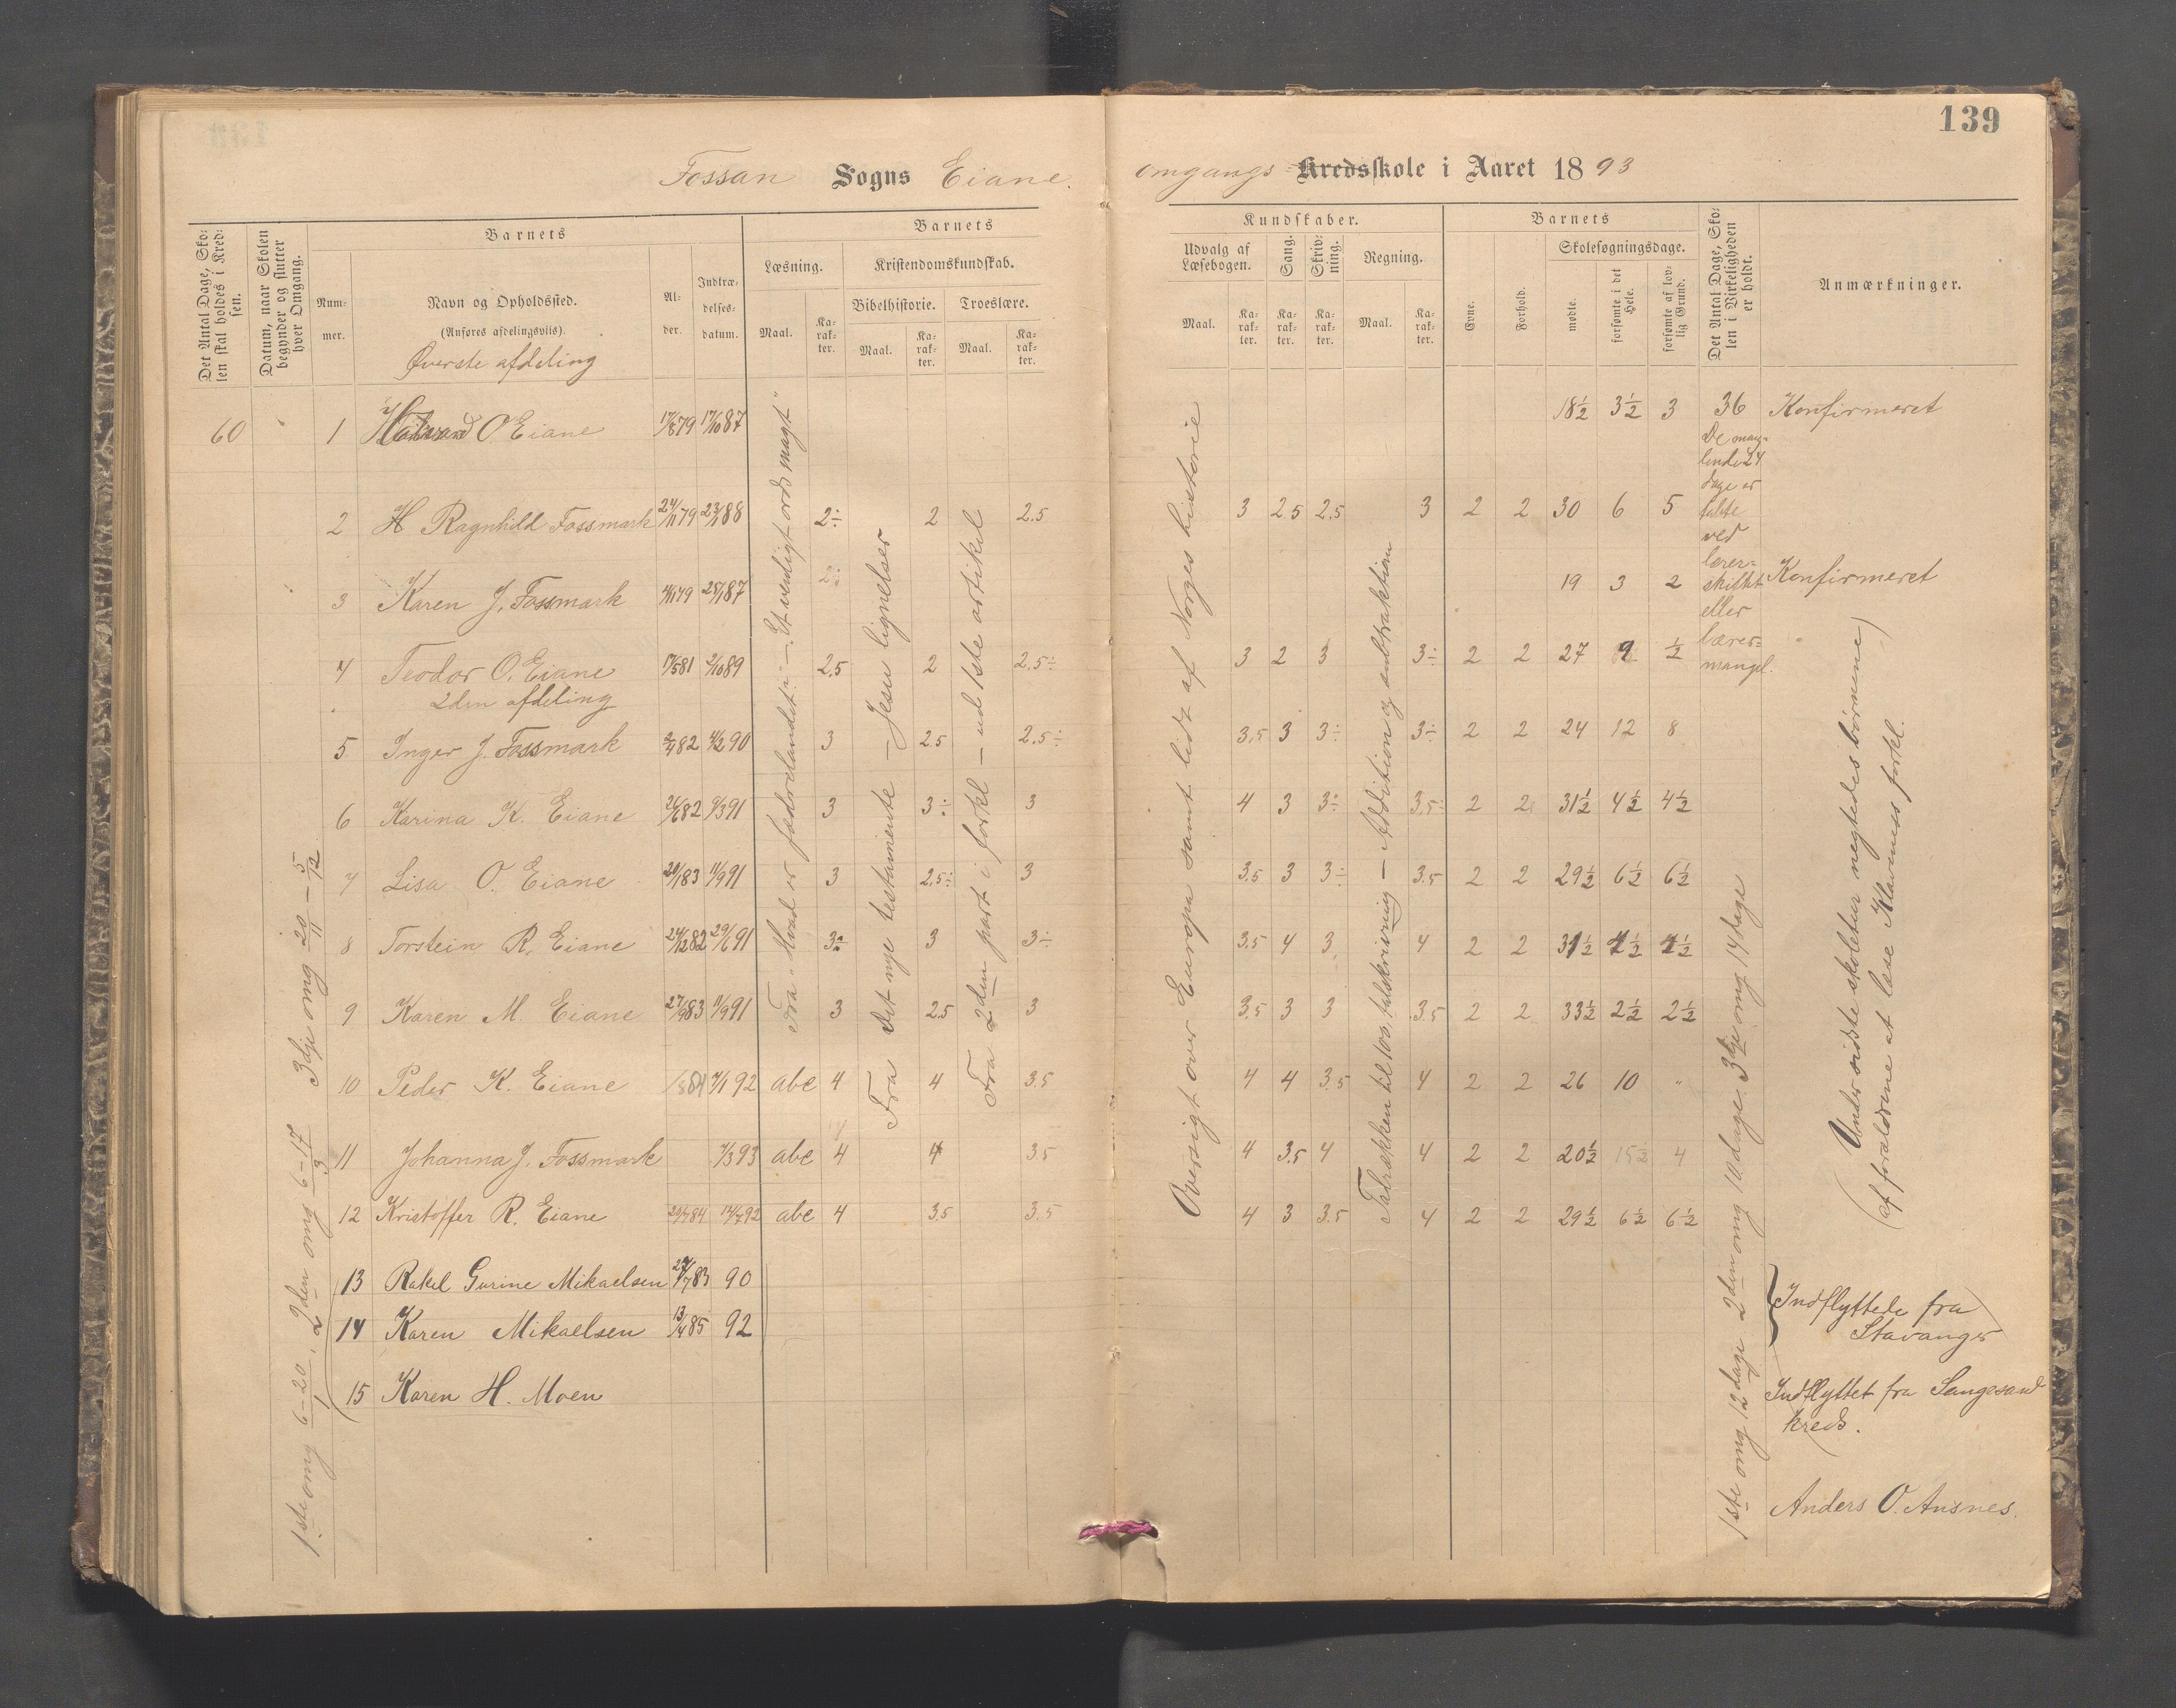 139
Fossan Sogns Eiane omgangs Kredsskole i Aaret 1893
Det Antal Dage, Skolen skal holdes i Kredsen.
Datum, naar Skolen begynder og slutter hver Omgang.
Barnets
Nummer.
Navn og Opholdssted.
(Anføres afdelingsvis).
Øverste afdeling
Alder.
Indtrædelsesdatum.
Barnets
Læsning.
Maal.
Karakter.
Kristendomskundskab.
Bibelhistorie.
Maal.
Karakter.
Troeslære.
Maal.
Karakter.
Kundskaber.
Udvalg af Læsebogen.
Maal.
Karakter.
Sang.
Karakter.
Skrivning.
Karakter.
Regning.
Maal.
Karakter.
Barnets
Evne.
Forhold.
Skolesøgningsdage.
mødte.
forsømte i det Hele.
forsømte af lovlig Grund.
Det Antal Dage, Skolen i Virkeligheden er holdt.
Anmærkninger.
60 1 O. Eiane 17/10 87 18½ 3½ 3 36 Konfirmeret
2 H Ragnhild Fossmark 24/11 79 23/1 88 2÷ 2 2.5 3 2.5 2.5 3 2 2 30 6 5
3 Karen J. Fossmark 25/1 87 19 3 2 Konfirmeret
4 Teodor O. Eiane 17/5 81 2/10 89 2.5 2 2.5÷ 3 2 3 3÷ 2 2 27 9 ½
2den afdeling
5 Inger J. Fossmark 82 4/2 90 3 2.5 2.5÷ 3.5 3 3÷ 3÷ 2 2 24 12 8
6 Karina K. Eiane 26/6 82 9/3 91 3 3÷ 3 4 3 3÷ 3.5÷ 2 2 31½ 4½ 4½
7 Lisa O. Eiane 20/1 83 11/9 91 3 2.5÷ 3 3.5 3 3÷ 3.5 2 2 29½ 6½ 6½
8 Torstein R. Eiane 24/12 82 29/6 91 3÷ 3 3÷ 3.5 4 3 4 2 2 31½ 4½ 4½
9 Karen M. Eiane 27/9 83 11/9 91 3 2.5 3 3.5 3 3 3.5 2 2 33½ 2½ 2½
10 Peder K. Eiane 84 7/1 92 abc 4 4 3.5 4 4 3.5 4 2 2 26 10 "
11 Johanna J. Fossmark 7/3 93 abc 4 4 3.5 4 3.5 4 4 2 2 20½ 15½ 4
12 Kristoffer R. Eiane 29/7 84 14/7 92 abc 4 3.5 3.5 4 3 3.5 4 2 2 29½ 6½ 6½
13 Rakel Gurine Mikaelsen 83 90
14 Karen Mikaelsen 13/4 85 92
Indflyttede fra
Stavanger
15 Karen H. Moen
Indflyttet fra Sangesand
kreds.
Anders O. Ansnes.
1ste omg 6–20/1. 2den omg 6–17/3 3dje omg 20/11 – 5/12
Fra "Hvad er fædrelandet" – "Et venligt ords magt"
Fra Det nye testamente – Jesu lignelser
Fra 2den part i forkl – ud 1ste artikel
Oversigt over Europa samt lidt af Norges historie
Talrækken til 100, talskrivning – Addition og subtraktion
De manglende 24
dage er
ved
lærerskiftet
eller
lærermangel.
1ste omg 12 dage 2den omg 10 dage. 3dje omg 14 dage
(Under sidste skoletur negtedes børnene
af forældrene at læse Klaveness forkl.)